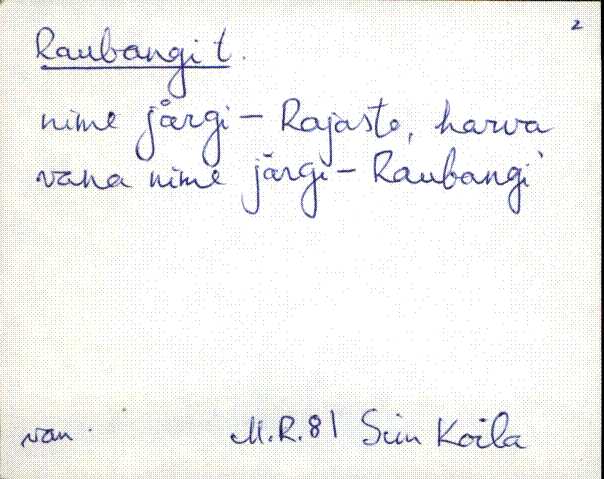 2
Raubangi t.
nime järgi – Rajaste, harva
vana nime järgi – Raubangi
van. M.R. 81 Siin Koila